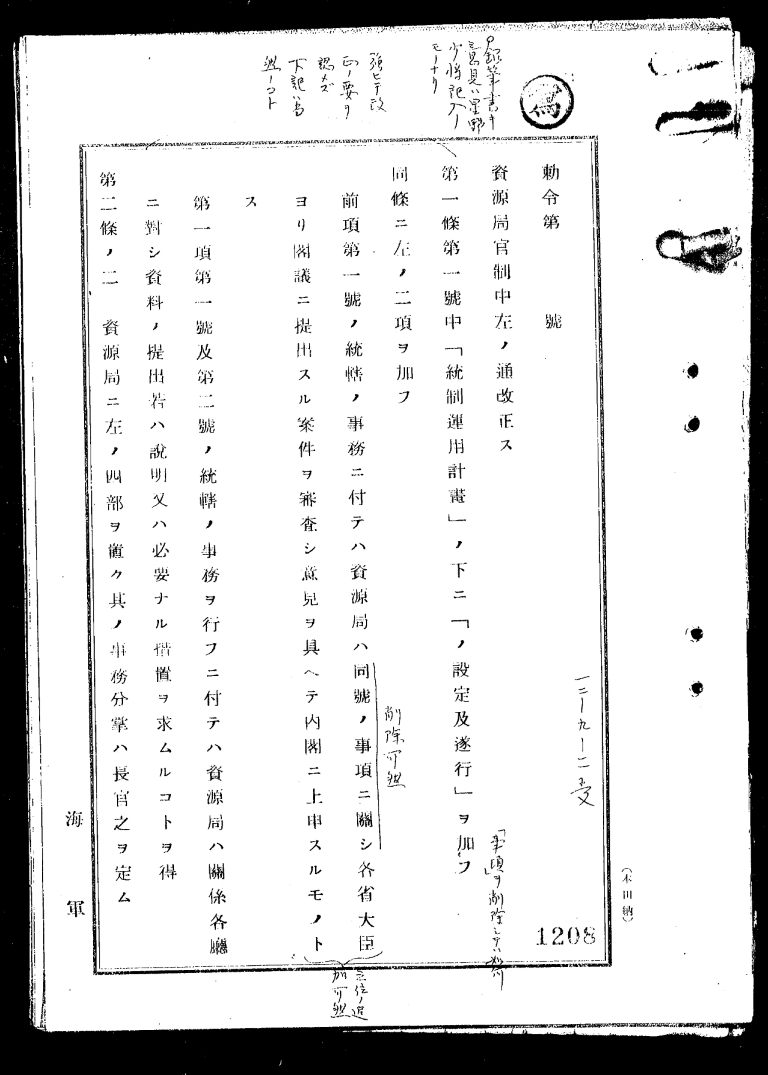 寫
鉛筆書キ
意見ハ星野
少将記入ノ
モノナリ
強ヒテ改
正ノ要ヲ
認メズ
下記ハ為
念ノコト
一二―九―一二受
勅令第　　號
資源局官制中左ノ通改正ス
第一條第一號中「統制運用計畫」ノ下ニ「ノ設定及遂行」ヲ加フ
同條ニ左ノ二項ヲ加フ
前項第一號ノ統轄ノ事務ニ付テハ資源局ハ同號ノ事項ニ關シ各省大臣
ヨリ閣議ニ提出スル案件ヲ審査シ意見ヲ具ヘテ内閣ニ上申スルモノト
ス
第一項第一號及第二號ノ統轄ノ事務ヲ行フニ付テハ資源局ハ關係各廳
ニ對シ資料ノ提出若ハ說明又ハ必要ナル措置ヲ求ムルコトヲ得
第二條ノ二　資源局ニ左ノ四部ヲ置ク其ノ事務分掌ハ長官之ヲ定ム
削除可然
「事項ヲ」削除シテハ如何
削可然
1208
(木田納)
海軍